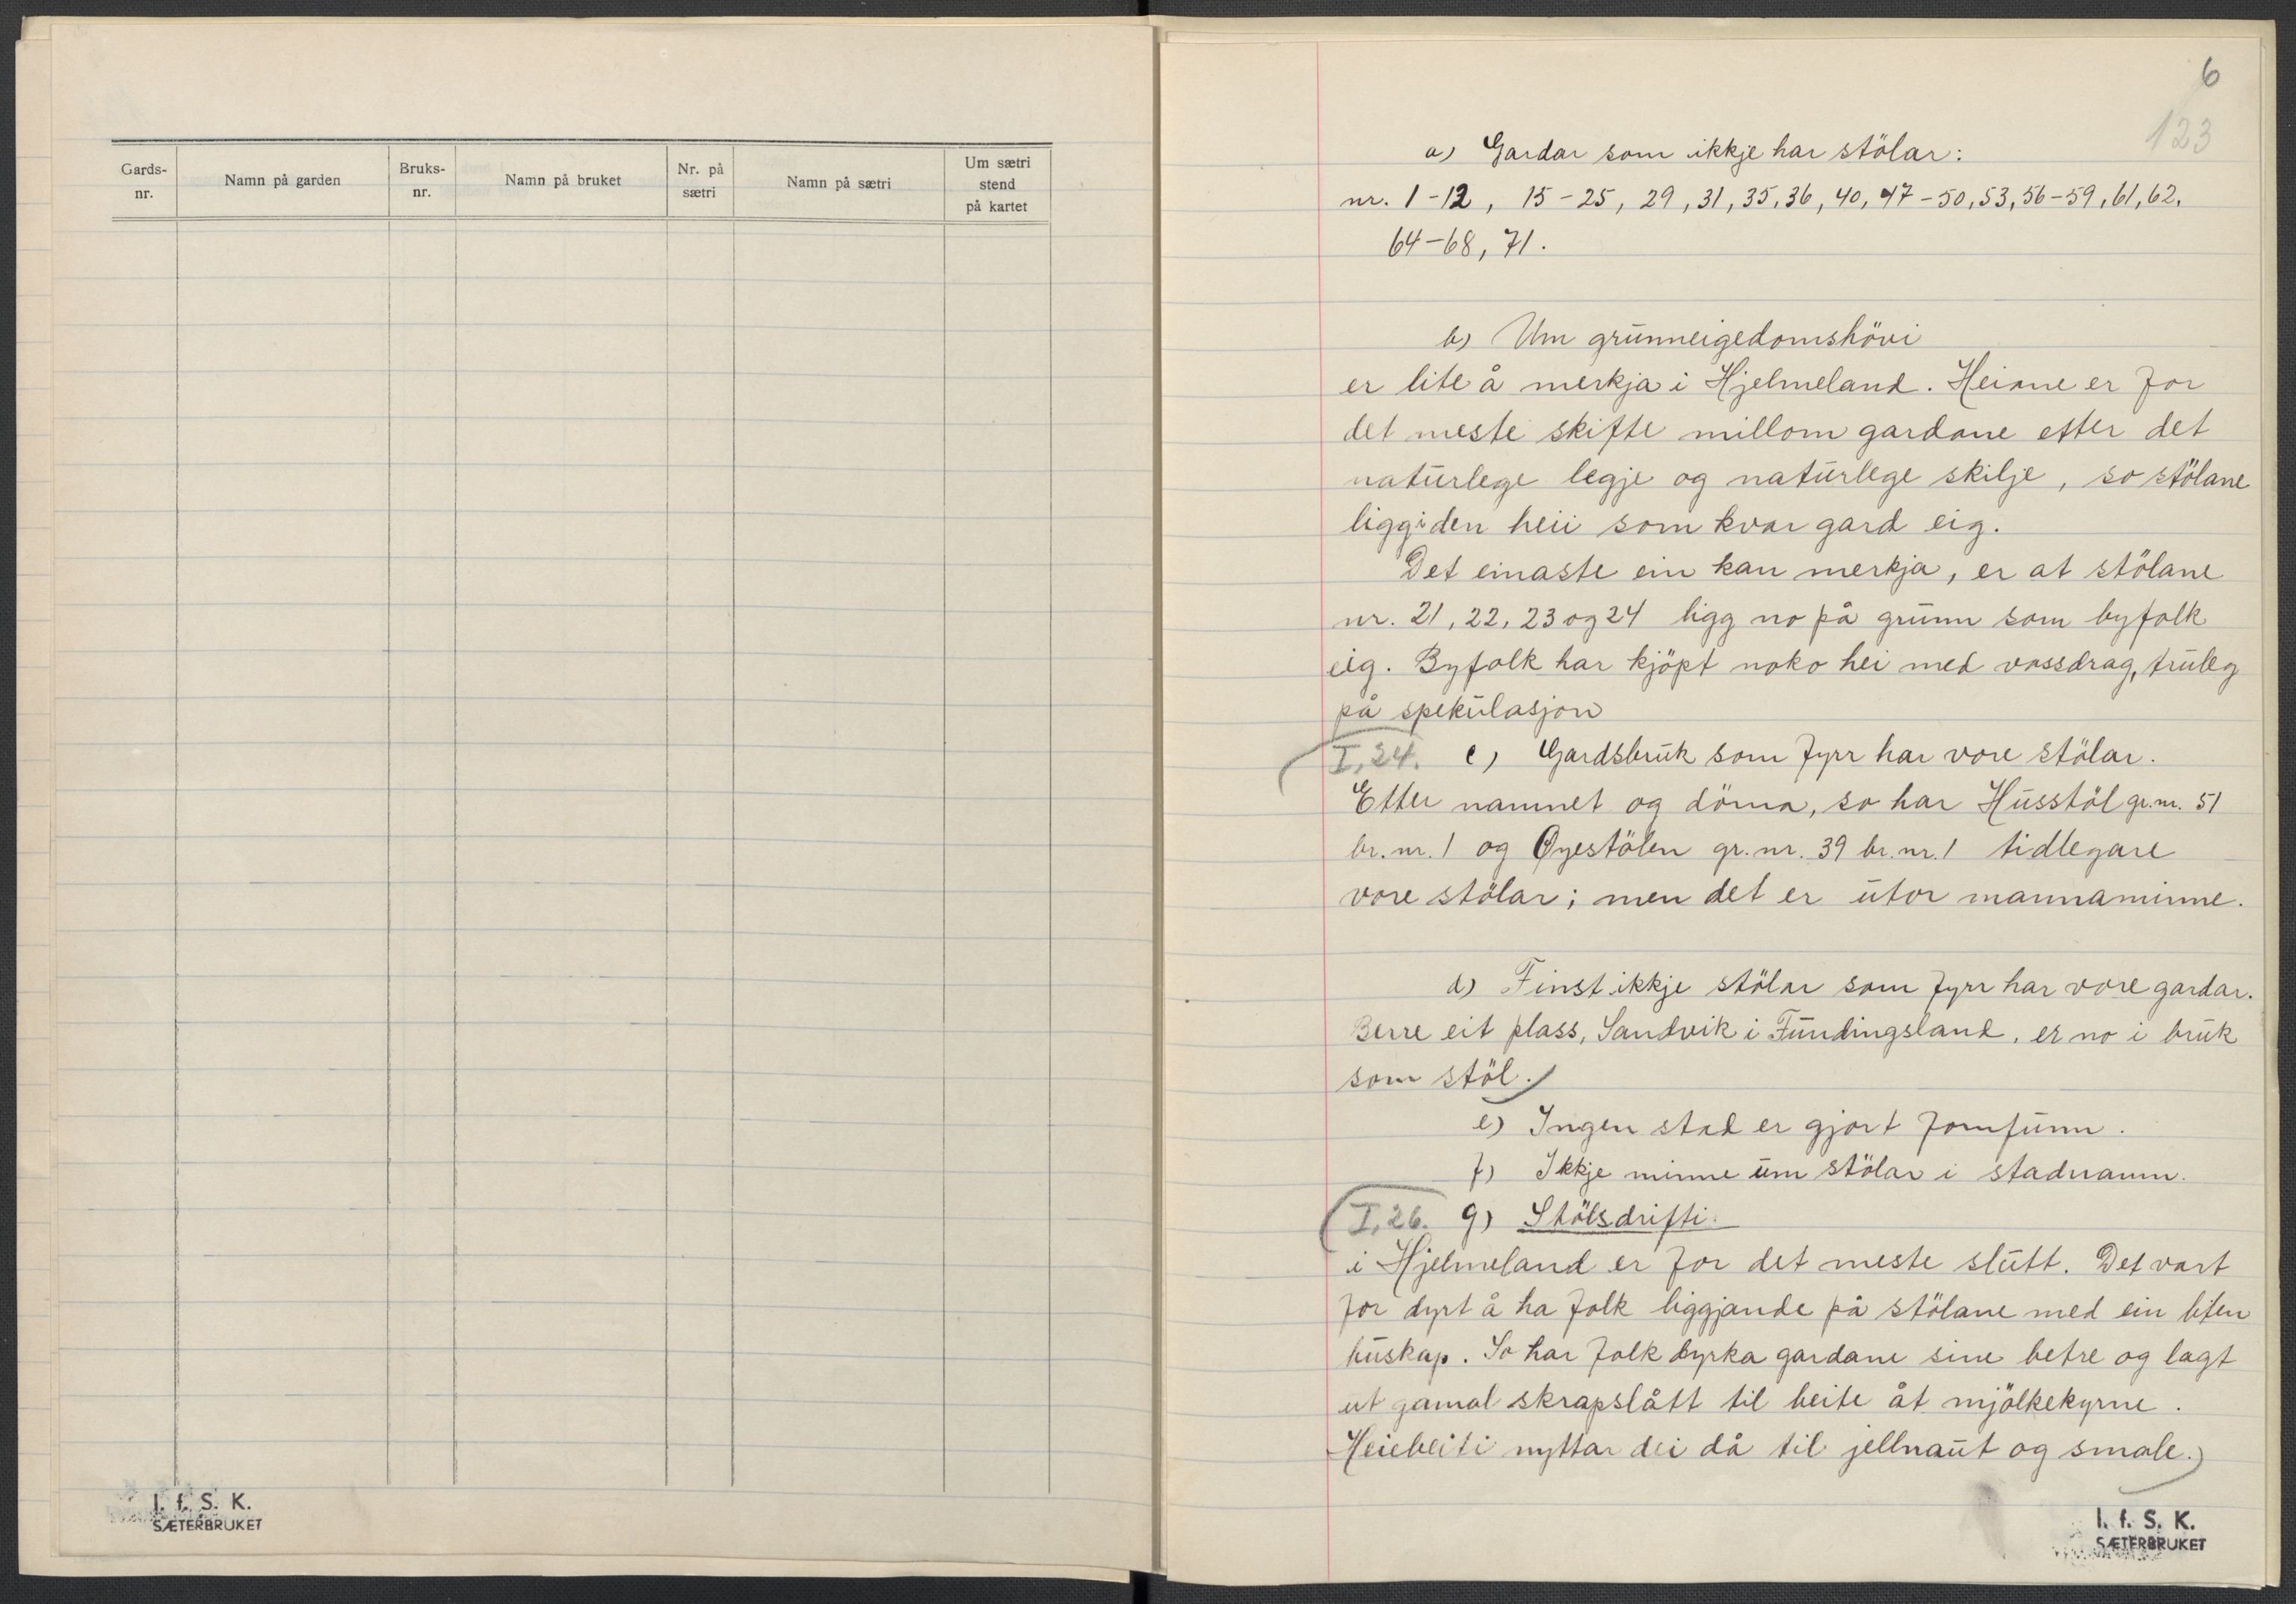 Gards-
nr.
Namn på garden
Bruks-
nr.
Namn på bruket
Nr. på
sætri
Namn på sætri
Um sætri
stend
på kartet
I. f. S. K.
SÆTERBRUKET
6
123
a) Gardar som ikkje har stölar:
nr. 1-12, 15-25, 29, 31, 35, 36, 40, 47-50, 53, 56-59, 61, 62,
64-68, 71.
b) Um grunneigedomshövi
er lite å merkja i Hjelmeland. Heiane er for
det meste skifte millom gardane etter det
naturlege legje og naturlege skilje, so stölane
ligg i den heii som kvar gard eig.
Det einaste ein kan merkja, er at stölane
nr. 21, 22, 23 og 24 ligg no på grunn som byfolk
eig. Byfolk har kjöpt noko hei med vassdrag, truleg
på spekulasjon
I, 24. c) Gardsbruk som fyrr har vore stölar.
Etter namnet og döma, so har Husstöl gr.nr. 51
br.nr. 1 og Øyestölen gr.nr. 39 br.nr. 1 tidlegare
vore stölar; men det er utor mannaminne.
d) Finst ikkje stölar som fyrr har vore gardar.
Berre eit plass, Sandvik i Fundingsland, er no i bruk
som stöl.
e) Ingen stad er gjort fornfunn.
f) Ikkje minne um stölar i stadnamn.
I, 26. g) Stölsdrifti.
i Hjelmeland er for det meste slutt. Det vart
for dyrt å ha folk liggjande på stölane med ein liten
buskap. So har folk dyrka gardane sine betre og lagt
ut gamal skrapslått til beite åt mjölkekyrne.
Heiebeiti nyttar dei då til jellnaut og smale.)
I. f. S. K.
SÆTERBRUKET